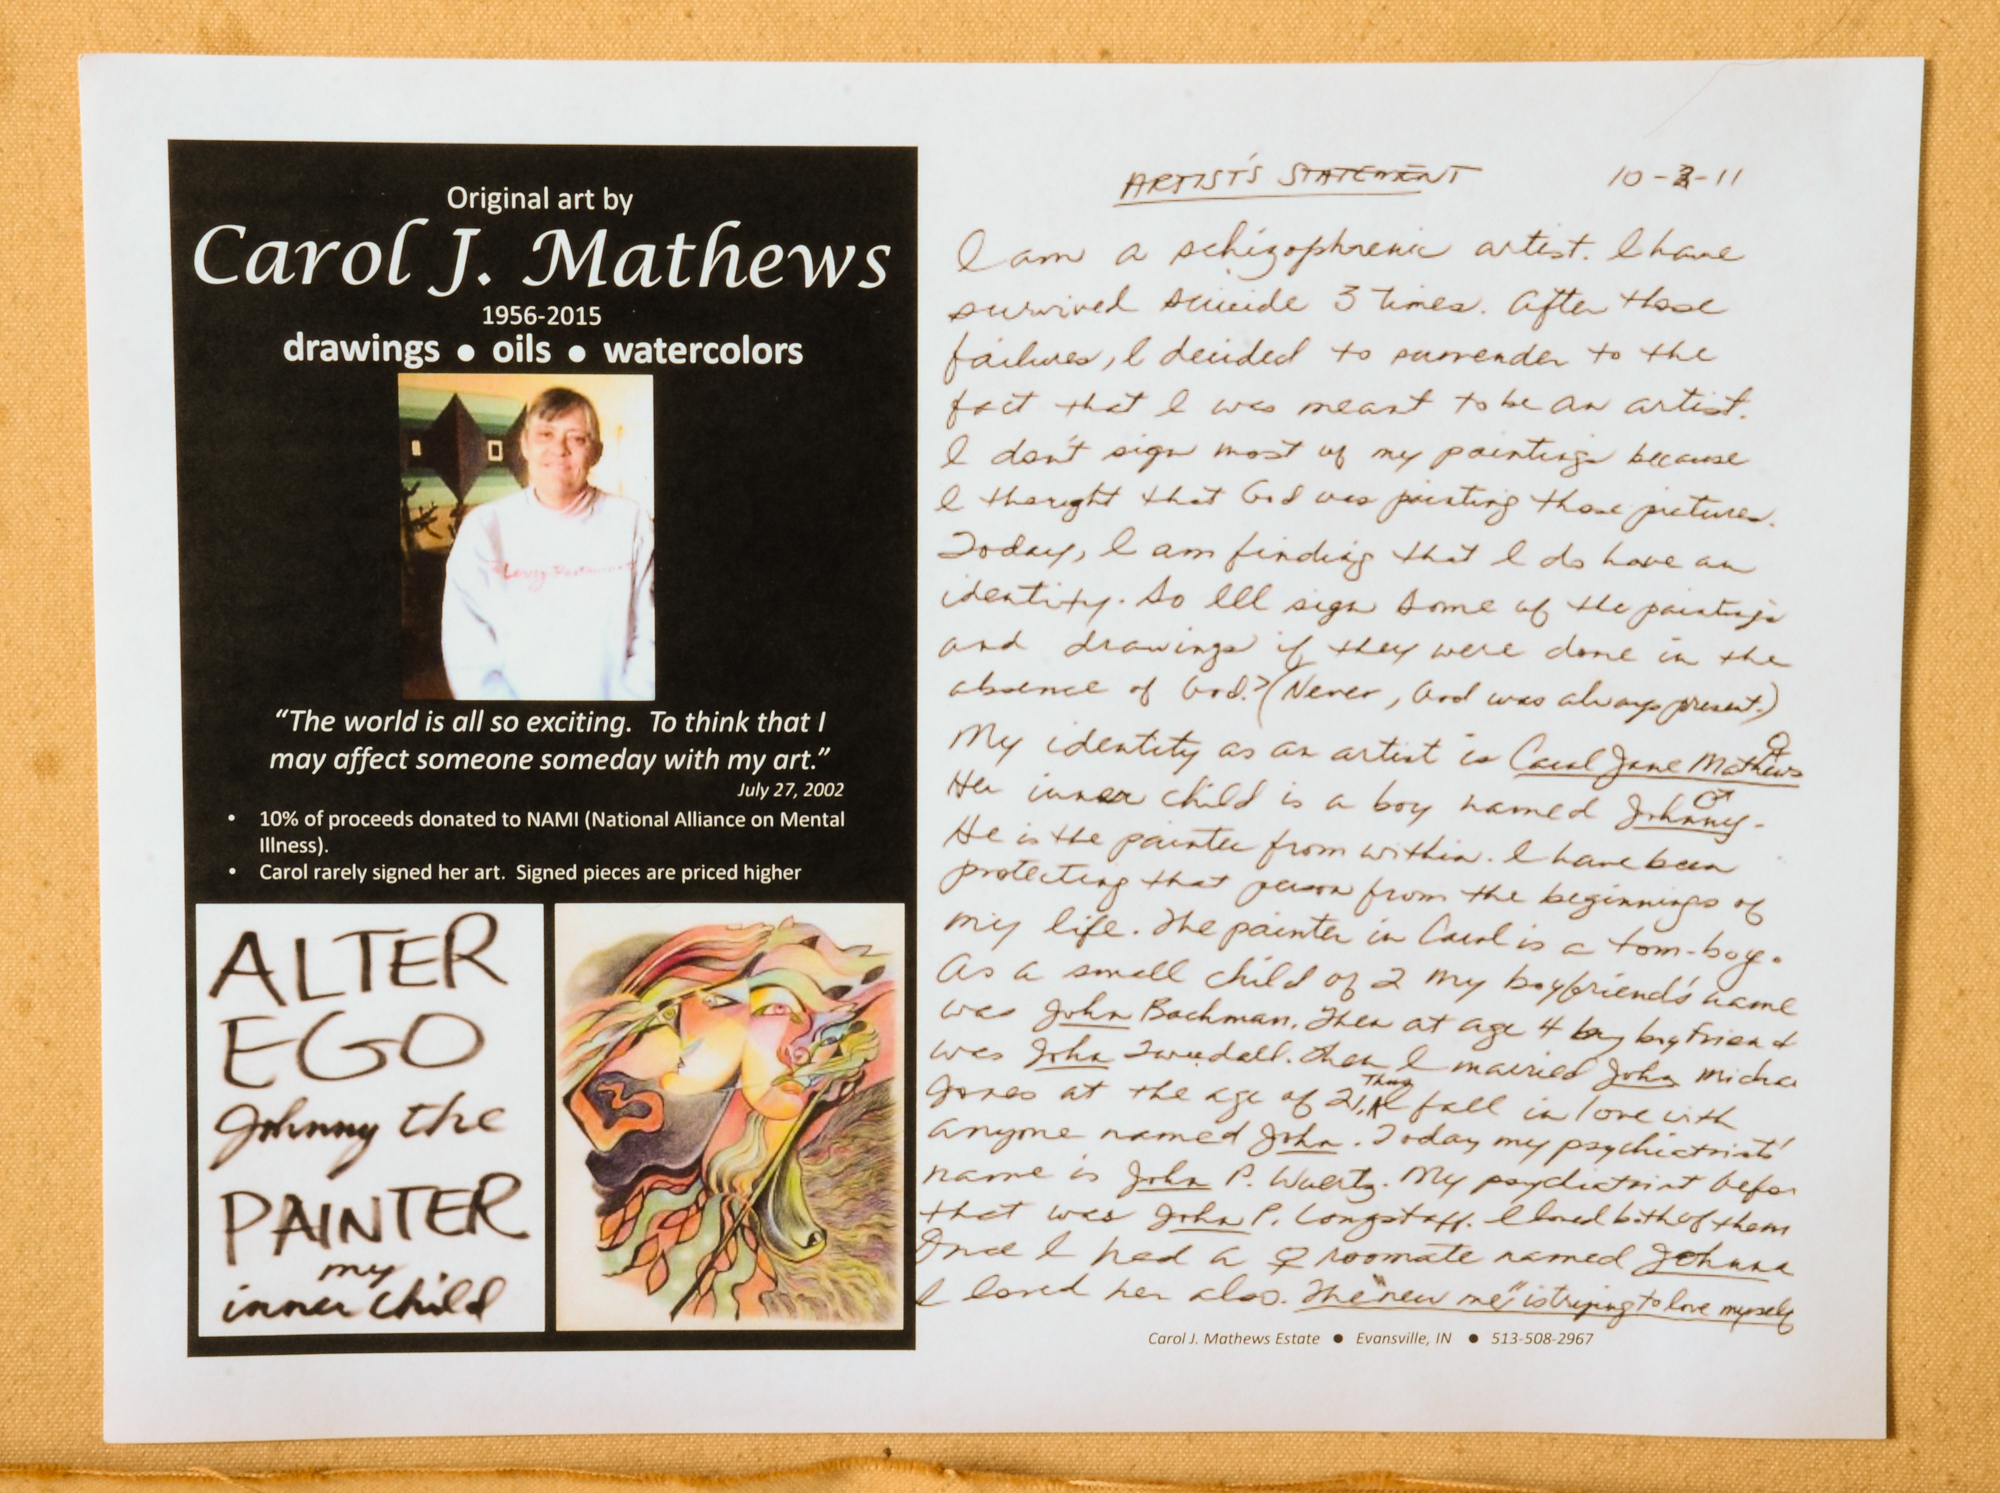 Original art by
Carol J. Mathews
1956-2015
drawings • oils • watercolors
“The world is all so exciting. To think that I
may affect someone someday with my art.”
July 27, 2002
• 10% of proceeds donated to NAMI (National Alliance on Mental
Illness).
• Carol rarely signed her art. Signed pieces are priced higher
ALTER
EGO
Johnny the
PAINTER
my
inner child
ARTIST'S STATEMENT 10-3-11
I am a schizophrenic artist. I have
survived suicide 3 times. After those
failures, I decided to surrender to the
fact that I was meant to be an artist.
I don't sign most of my paintings because
I thought that God was painting those pictures.
Today, I am finding that I do have an
identity. So I'll sign some of the paintings
and drawings if they were done in the
absence of God.? (Never, God was always present.)
My identity as an artist is Carol Jane Mathews ♀
Her inner child is a boy named Johnny ♂.
He is the painter from within. I have been
protecting that person from the beginnings of
my life. The painter in Carol is a tom-boy.
As a small child of 2 my boyfriend's name
was John Bachman. Then at age 4 my boyfriend
was John Tweedall. Then I married John Michae
Jones at the age of 21. Thus I fall in love with
anyone named John. Today my psychiatrists'
name is John P. Wuertz. My psychiatrist befor
that was John P. Longstaff. I loved both of them
Once I had a ♀ roomate named Johnna
I loved her also. The "new me" is trying to love myself
Carol J. Mathews Estate • Evansville, IN • 513-508-2967